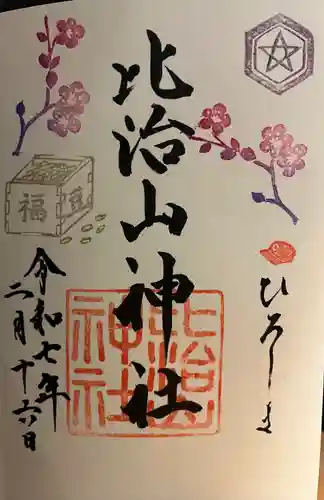 ひろしま
比治山神社
比治山
神社
福
令和七年
二月十六日